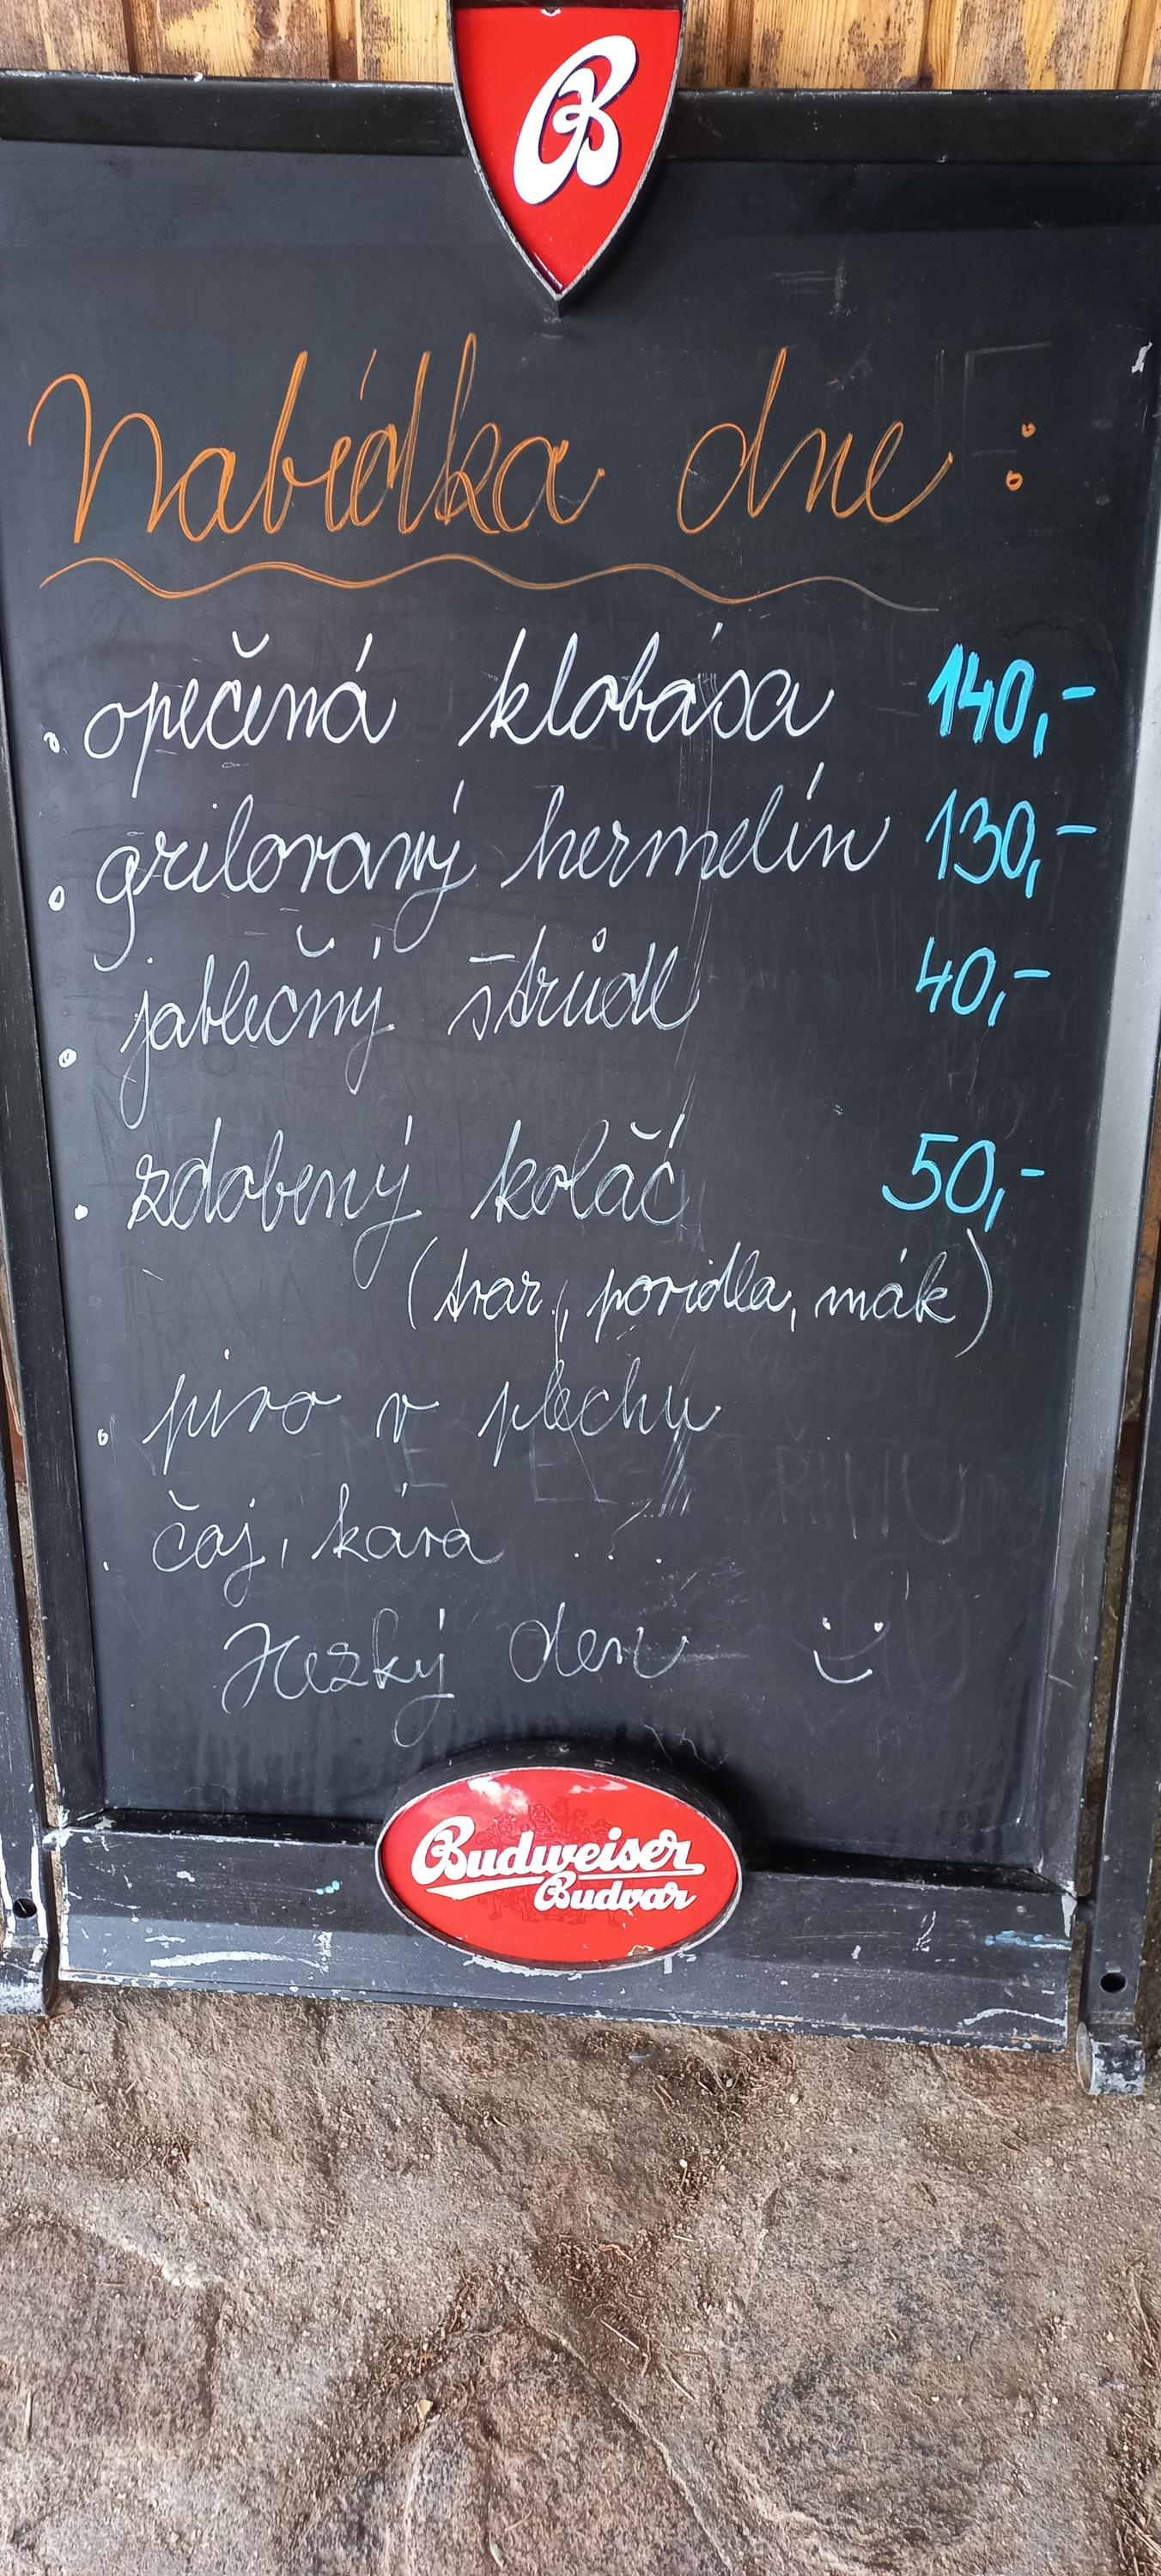 B
Nabídka dne:
• opečená klobása 140,-
• grilovaný hermelín 130,-
• jablečný štrůdl 40,-
• zdobený koláč 50,-
(tvar., povidla, mák)
• pivo v plechu
• čaj, káva ...
Hezký den
Budweiser
Budvar